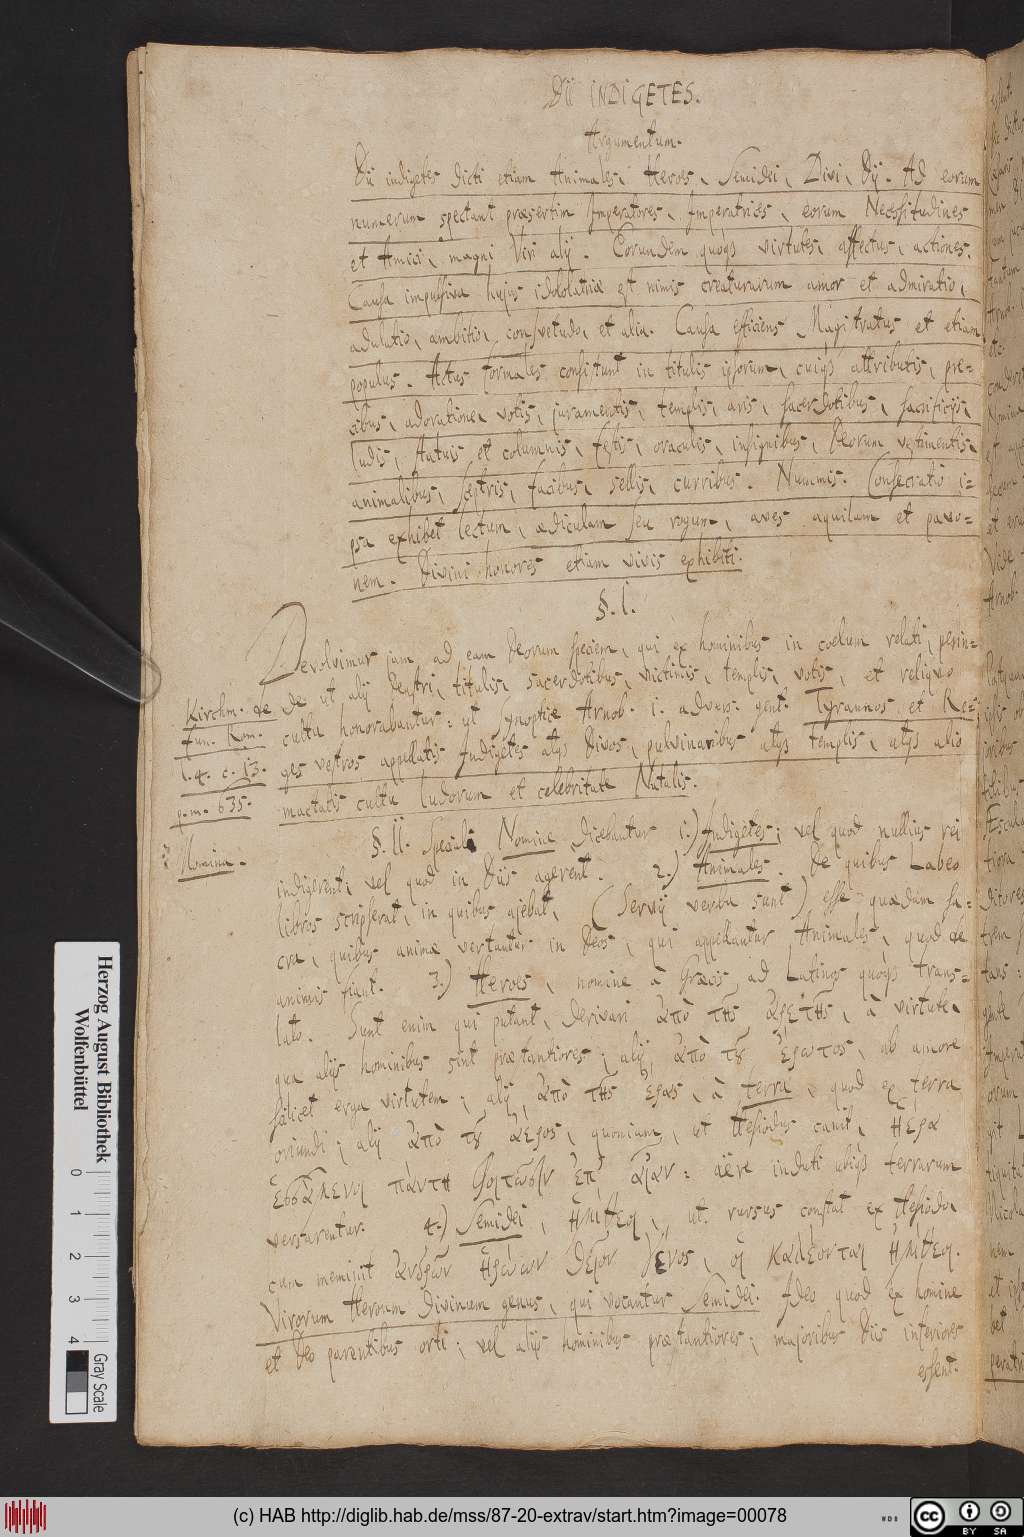 Dii INDIGETES.
Argumentum.
Dii indigetes dicti etiam Animales, Heroes, Semidei, Divi, Dij. Ad eorum
numerum spectant præsertim Imperatores, Imperatrices, eorum Necessitudines
et Amici, magni Viri alij. Eorundem quoque virtutes, affectus, actiones.
Causa impulsiva hujus idololatriæ est nimis creaturarum amor et admiratio,
adulatio, ambitio, consvetudo, et alia. Causa efficiens Magistratus et etiam
populus. Actus formales consistunt in titulis ipsorum, attributis, pre=
cibus, adoratione, votis, juramentis, templis, aris, sacerdotibus, sacrificijs,
ludis, statuis et columnis, festis, oraculis, insignibus, Deorum vestimentis,
animalibus, sceptris, facibus, sellis, curribus. Nummis. Consecratio i=
psa exhibet lectum, ædiculam seu rogum, aves aquilam et pavo=
nem. Divini honores etiam vivis exhibiti.
§. I.
Devolvimur jam ad eam Deorum speciem, qui ex hominibus in coelum relati, perin=
de ut alij Deastri, titulis, sacerdotibus, victimis, templis, votis, et reliquo
cultu honorabantur: ut synoptice Arnob. i. advers. gent. Tyrannos et Re=
ges vestros appellatis Indigetes alijs Divos, pulvinaribus alijs templis, alijs alio
mactatis cultu ludorum et celebritate Natalis.
Kirchm. de
fun. Rom.
l. 4. c. 13.
p. m. 635.
§. II. Nomine dicebantur 1.) Indigetes; vel quod nullius rei
Nomina.
indigerent; vel quod in Diis agerent. 2.) Animales. De quibus Labeo
libros scripserat, in quibus ajebat, (Servij verba sunt) esse quædam sa=
cra, quibus animæ vertantur in Deos, qui appellantur Animales, quod de
animis fiant. 3.) Heroes, nomine à Græcis ad Latinos quoque trans=
lato. Sunt enim qui putant, derivari ἀπὸ τῆς ἀρετῆς, à virtute,
qua alijs hominibus sint præstantiores; alij ἀπὸ τȣ ἔρωτος, ab amore
scilicet erga virtutem; alij, ἀπὸ τῆς ἔρας, à terra, quod ex terra
oriundi; alij ἀπὸ τȣ ἀέρος, quoniam, ut Hesiodus canit, ἠέρα
ἑσσάμενοι πάντη φοιτῶσιν ἐπ' αἶαν: aëre induti ubique terrarum
versarentur. 4.) Semidei, ἡμίθεοι, ut rursus constat ex Hesiodo,
cum meminit ἀνδρῶν ἡρώων θεῖον γένος, οἳ καλέονται ἡμίθεοι.
Virorum Heroum divinum genus, qui vocantur Semidei. Ideo quod ex homine
et Deo parentibus orti; vel alijs hominibus præstantiores; majoribus Diis inferiores
essent.
Herzog August Bibliothek
Wolfenbüttel
0 1 2 3 4
Gray Scale
(c) HAB http://diglib.hab.de/mss/87-20-extrav/start.htm?image=00078
cc BY SA